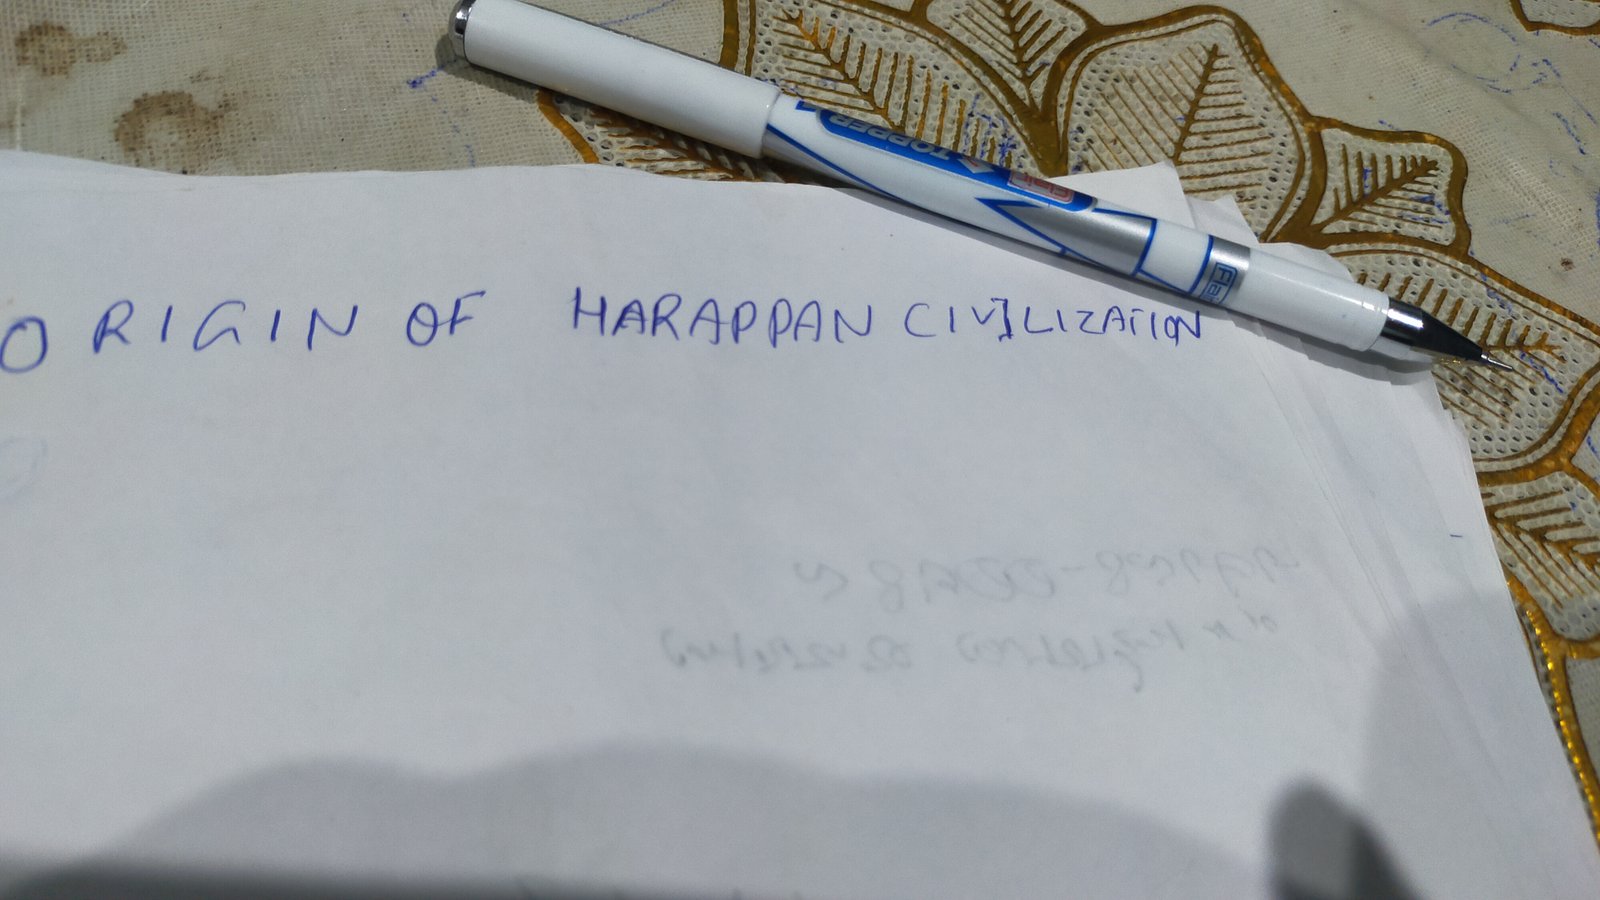 ORIGIN OF HARAPPAN CIVILIZATION
TOPPER
Flair